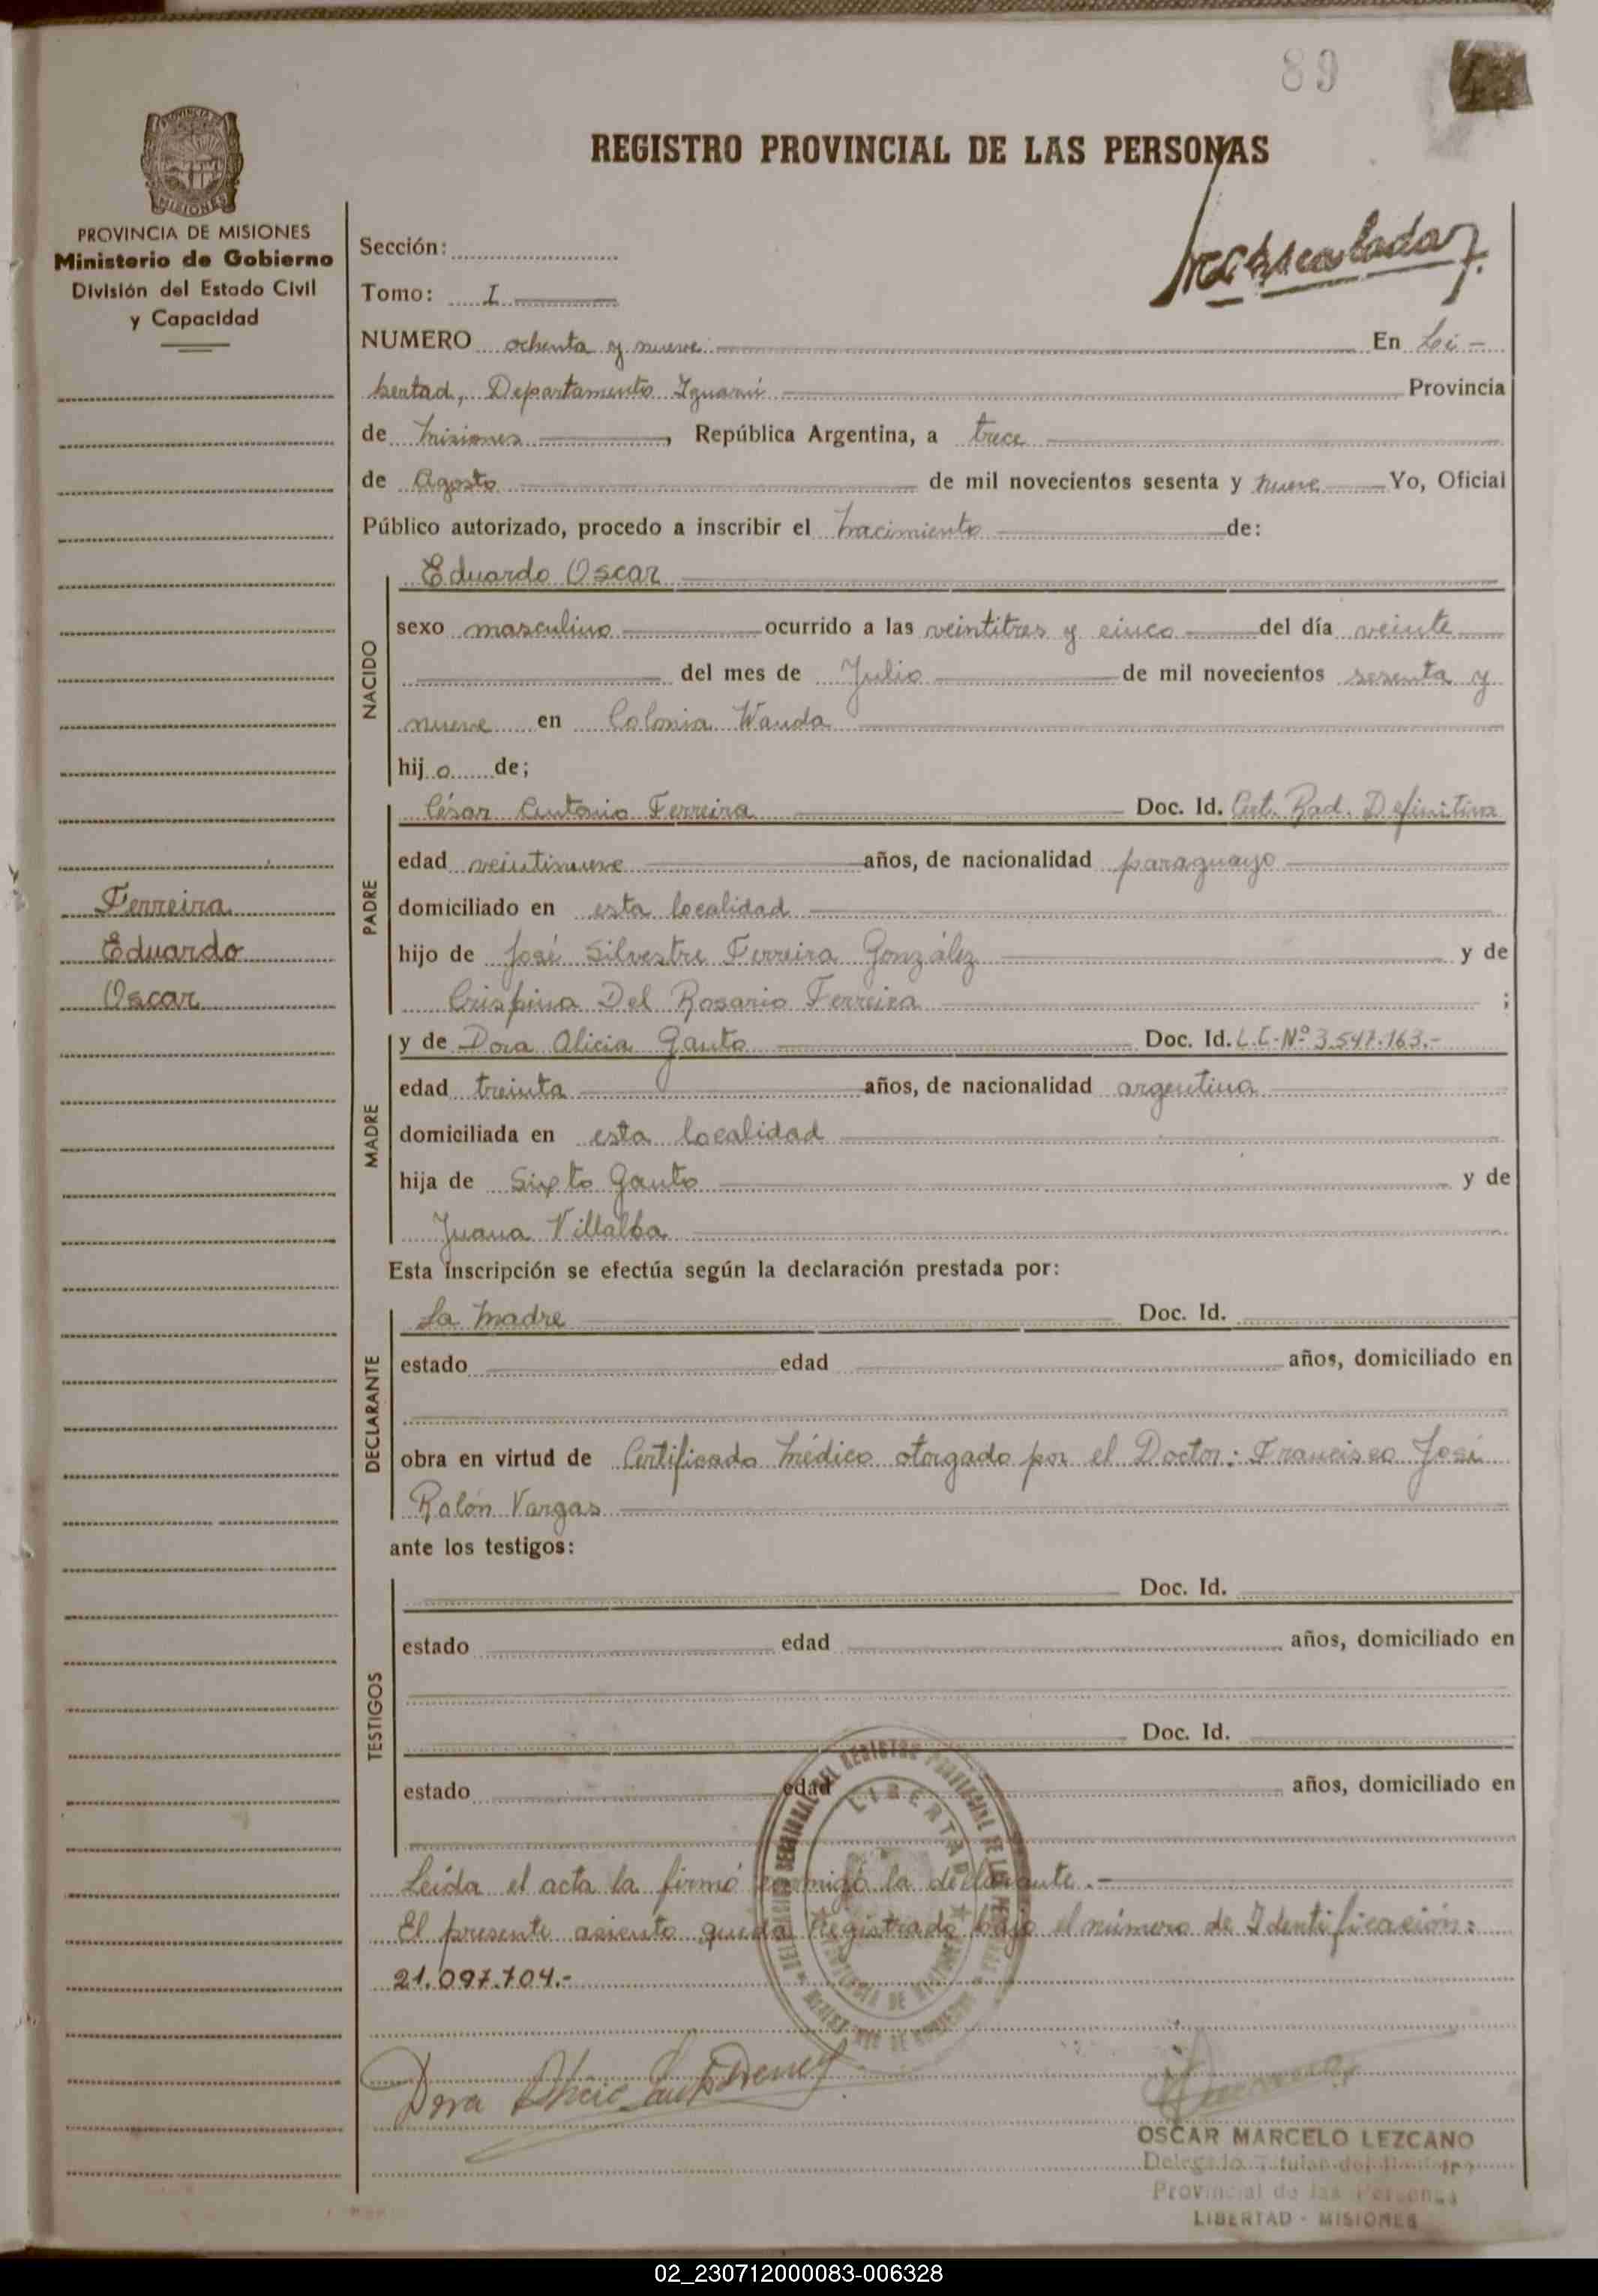 89
REGISTRO PROVINCIAL DE LAS PERSONAS
PROVINCIA DE MISIONES
Ministerio de Gobierno
División del Estado Civil
y Capacidad
Sección:
Tomo: I
NUMERO ochenta y nueve En Li-
bertad, Departamento Iguazú Provincia
de Misiones, República Argentina, a trece
de Agosto de mil novecientos sesenta y nueve Yo, Oficial
Público autorizado, procedo a inscribir el nacimiento de:
NACIDO
Eduardo Oscar
sexo masculino ocurrido a las veintitres y cinco del día veinte
del mes de Julio de mil novecientos sesenta y
nueve en Colonia Wanda
hijo de;
PADRE
César Antonio Ferreira Doc. Id. Cert. Rad. Definitiva
edad veintinueve años, de nacionalidad paraguayo
domiciliado en esta localidad
hijo de José Silvestre Ferreira González y de
Crispina Del Rosario Ferreira ;
Ferreira
Eduardo
Oscar
MADRE
y de Dora Alicia Gauto Doc. Id. L.C. Nº 3.547.163.-
edad treinta años, de nacionalidad argentina
domiciliada en esta localidad
hija de Sixto Gauto y de
Juana Villalba
Esta inscripción se efectúa según la declaración prestada por:
DECLARANTE
La Madre Doc. Id.
estado edad años, domiciliado en
obra en virtud de Certificado Médico otorgado por el Doctor: Francisco José
Rolón Vargas
ante los testigos:
TESTIGOS
Doc. Id.
estado edad años, domiciliado en
Doc. Id.
estado edad años, domiciliado en
Leída el acta la firmó conmigo la declarante.-
El presente asiento queda Registrado bajo el número de Identificación:
21.097.704.-
LIBERTAD
Dora Alicia
OSCAR MARCELO LEZCANO
Delegado Titular del Registro
Provincial de las Personas
LIBERTAD - MISIONES
02_230712000083-006328